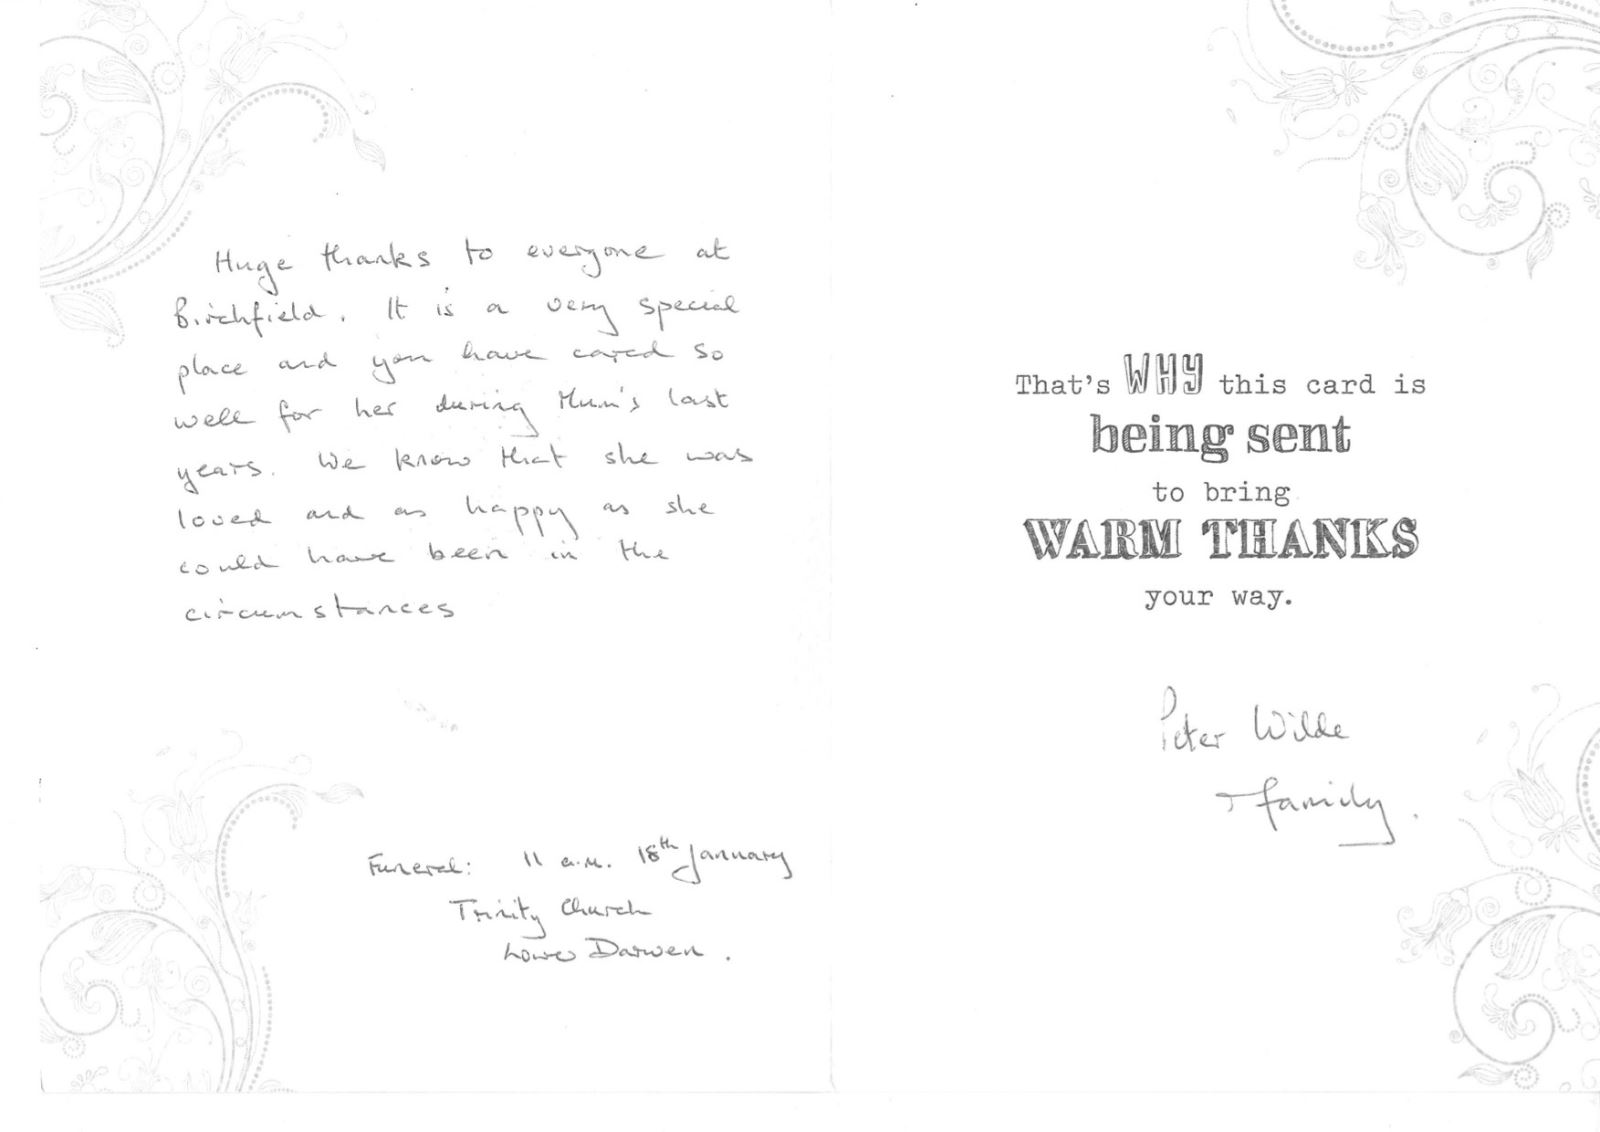 Huge thanks to everyone at
Birchfield. It is a very special
place and you have cared so
well for her during Mum's last
years. We know that she was
loved and as happy as she
could have been in the
circumstances
Funeral: 11 a.m. 18th January
Trinity Church
Lower Darwen.
That's WHY this card is
being sent
to bring
WARM THANKS
your way.
Peter Wilde
+ family.